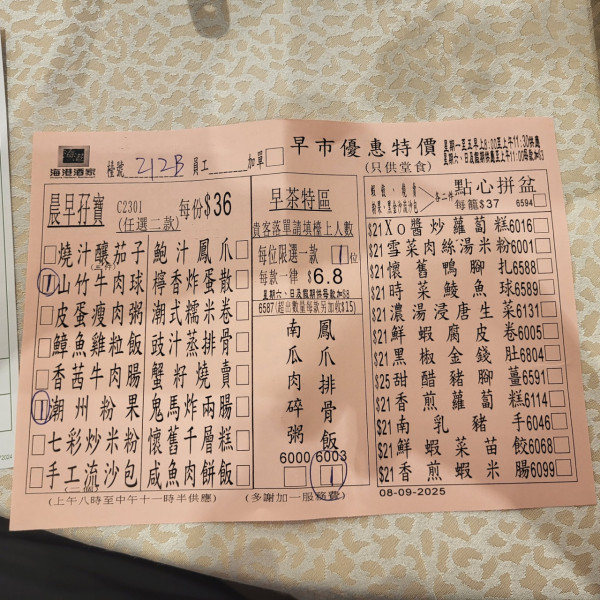 海港酒家
檯號 212B 員工 加單
早市優惠特價
(只供堂食)
星期一至五早上8:00至上午11:30供應
晨早孖寶 C2301 (任選二款) 每份$36
燒汁釀茄子 鮑汁鳳爪
1 山竹牛肉球 檸香炸蛋散
皮蛋瘦肉粥 潮式糯米卷
鱆魚雞粒飯 豉汁蒸排骨
香茜牛肉腸 蟹籽燒賣
1 潮州粉果 鬼馬炸兩腸
七彩炒米粉 懷舊千層糕
手工流沙包 咸魚肉餅飯
早茶特區
貴客落單請填檯上人數
每位限選一款 1 位
每款一律 $6.8
6587(超出數量每款另加收$15)
南瓜肉碎粥 鳳爪排骨飯
6000 6003
1
各二件 點心拼盆
每籠$37 6594
$21 Xo醬炒蘿蔔糕 6016
$21 雪菜肉絲湯米粉 6001
$21 懷舊鴨腳扎 6588
$21 時菜鯪魚球 6589
$21 濃湯浸唐生菜 6131
$21 鮮蝦腐皮卷 6005
$21 黑椒金錢肚 6804
$25 甜醋豬腳薑 6591
$21 香煎蘿蔔糕 6114
$21 南乳豬手 6046
$21 鮮蝦菜苗餃 6068
$21 香煎蝦米腸 6099
(上午八時至中午十一時半供應)
(多謝加一服務費)
08-09-2025